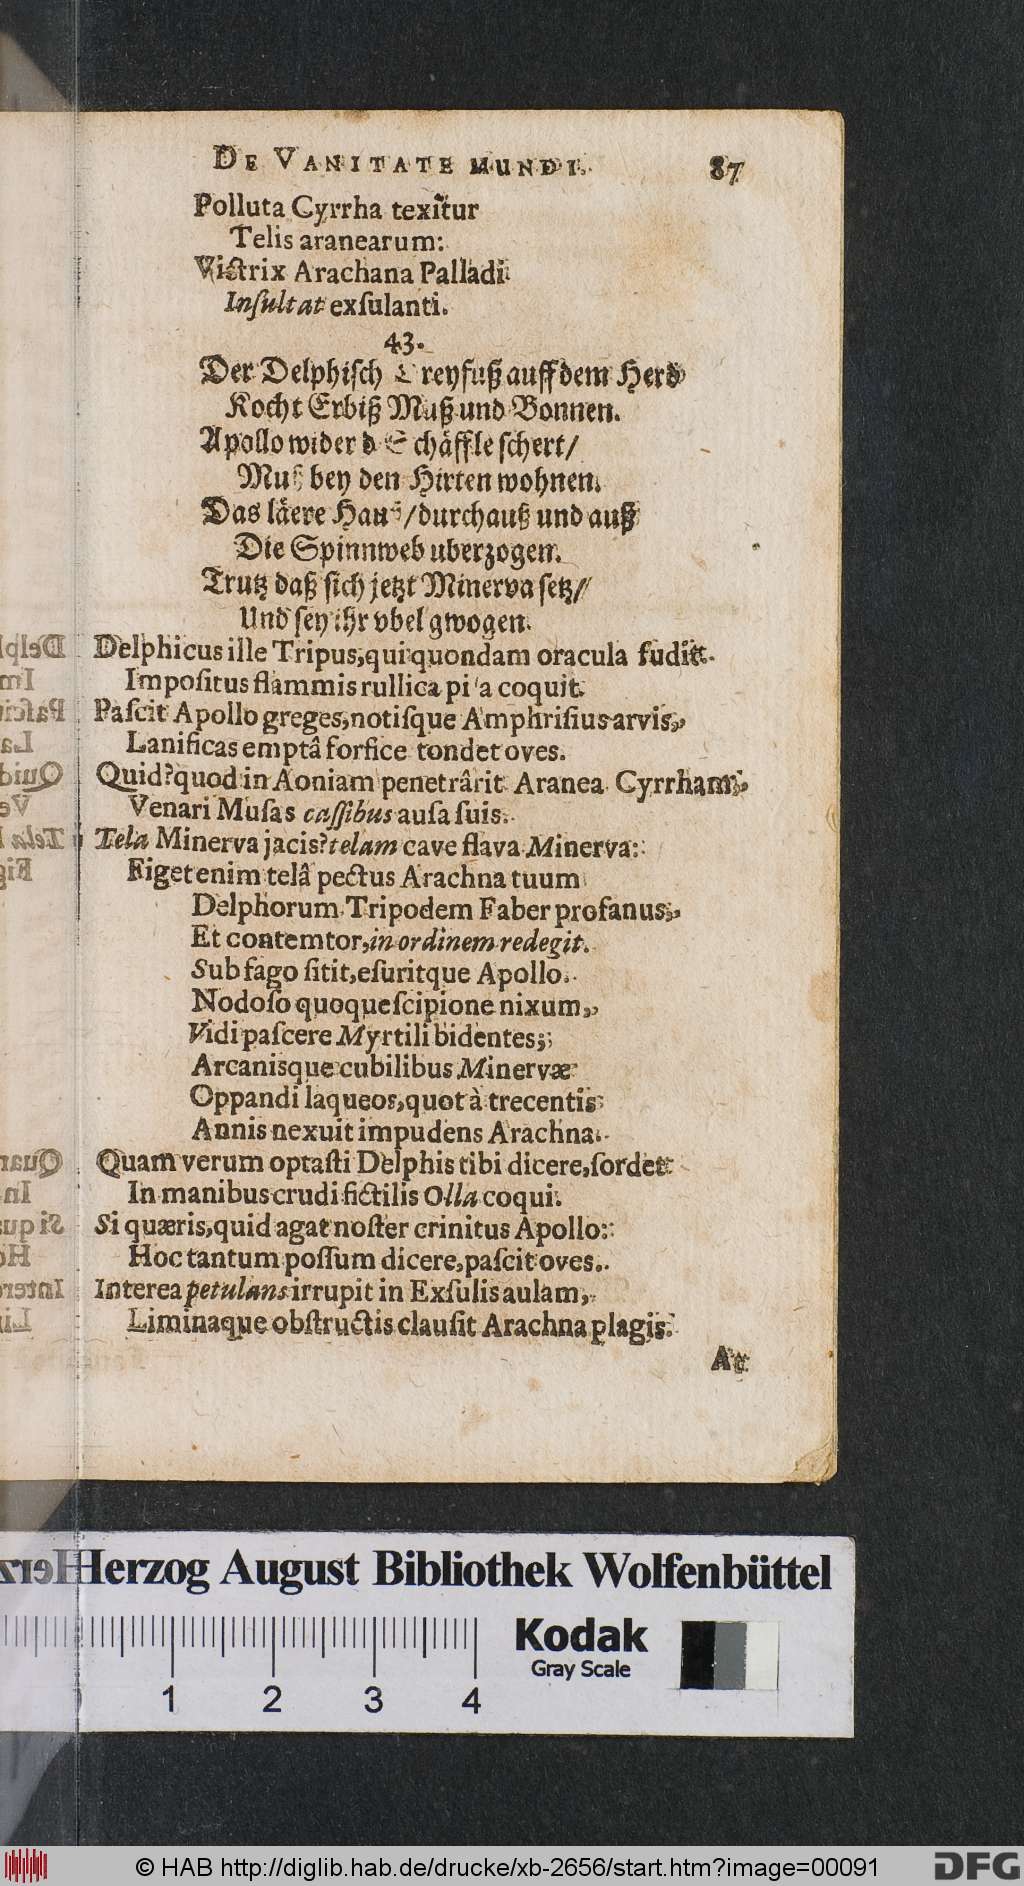 DE VANITATE MUNDI. 87
Polluta Cyrrha texitur
Telis aranearum:
Victrix Arachana Palladi
Inſultat exſulanti.
43.
Der Delphiſch Treyfuß auff dem Herd
Kocht Erbiß Muß und Bonnen.
Apollo wider d Schäffle ſchert/
Muß bey den Hirten wohnen.
Das läere Hauß/durchauß und auß
Die Spinnweb uberzogen.
Trutz daß ſich jetzt Minerva ſetz/
Und ſey ihr vbel gwogen.
Delphicus ille Tripus, qui quondam oracula fudit.
Impoſitus flammis rullica piſa coquit.
Paſcit Apollo greges, notiſque Amphriſius arvis,
Lanificas emptâ forfice tondet oves.
Quid? quod in Aoniam penetrârit Aranea Cyrrham,
Venari Muſas caſſibus auſa ſuis.
Tela Minerva jacis? telam cave flava Minerva:
Figet enim telâ pectus Arachna tuum
Delphorum Tripodem Faber profanus,
Et contemtor, in ordinem redegit.
Sub fago ſitit, eſuritque Apollo.
Nodoſo quoque ſcipione nixum,
Vidi paſcere Myrtili bidentes;
Arcanisque cubilibus Minervæ
Oppandi laqueos, quot à trecentis
Annis nexuit impudens Arachna.
Quam verum optaſti Delphis tibi dicere, ſordet
In manibus crudi fictilis Olla coqui.
Si quæris, quid agat noſter crinitus Apollo:
Hoc tantum poſſum dicere, paſcit oves.
Interea petulans irrupit in Exſulis aulam,
Liminaque obſtructis clauſit Arachna plagis.
At
Herzog August Bibliothek Wolfenbüttel
Kodak
Gray Scale
1 2 3 4
© HAB http://diglib.hab.de/drucke/xb-2656/start.htm?image=00091
DFG